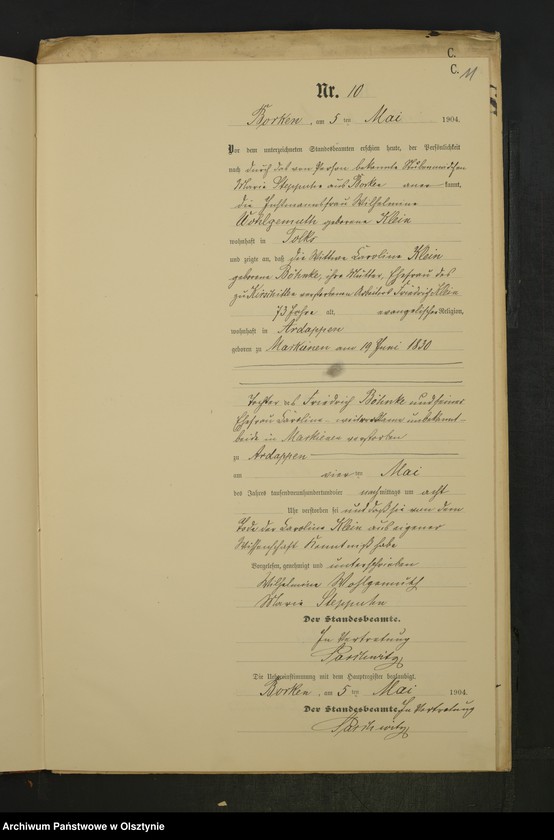 C.
C. 11
Nr. 10
Borken, am 5 ten Mai 1904.
Vor dem unterzeichneten Standesbeamten erschien heute, der Persönlichkeit
nach durch das von Person bekannte Stubenmädchen
Marie Steppuhn aus Borken anerkannt,
die Instmannsfrau Wilhelmine
Wohlgemuth geborene Klein
wohnhaft in Tolks
und zeigte an, daß die Wittwe Caroline Klein
geborene Böhnke, ihre Mutter, Ehefrau des
zu verstorbenen Arbeiters Friedrich Klein
73 Jahre alt, evangelischer Religion,
wohnhaft in Ardappen
geboren zu Markienen am 19 Juni 1830
Tochter des Friedrich Böhnke und seiner
Ehefrau Caroline unbekannt
beide in Markienen verstorben
zu Ardappen
am vier ten Mai
des Jahres tausendneunhundertundvier nachmittags um acht
Uhr verstorben sei und daß sie von dem
Tode der Caroline Klein aus eigener
Wissenschaft Kenntniß habe
Vorgelesen, genehmigt und unterschrieben
Wilhelmine Wohlgemuth
Marie Steppuhn
Der Standesbeamte.
In Vertretung
Die Uebereinstimmung mit dem Hauptregister beglaubigt.
Borken, am 5 ten Mai 1904.
Der Standesbeamte. In Vertretung
Archiwum Państwowe w Olsztynie